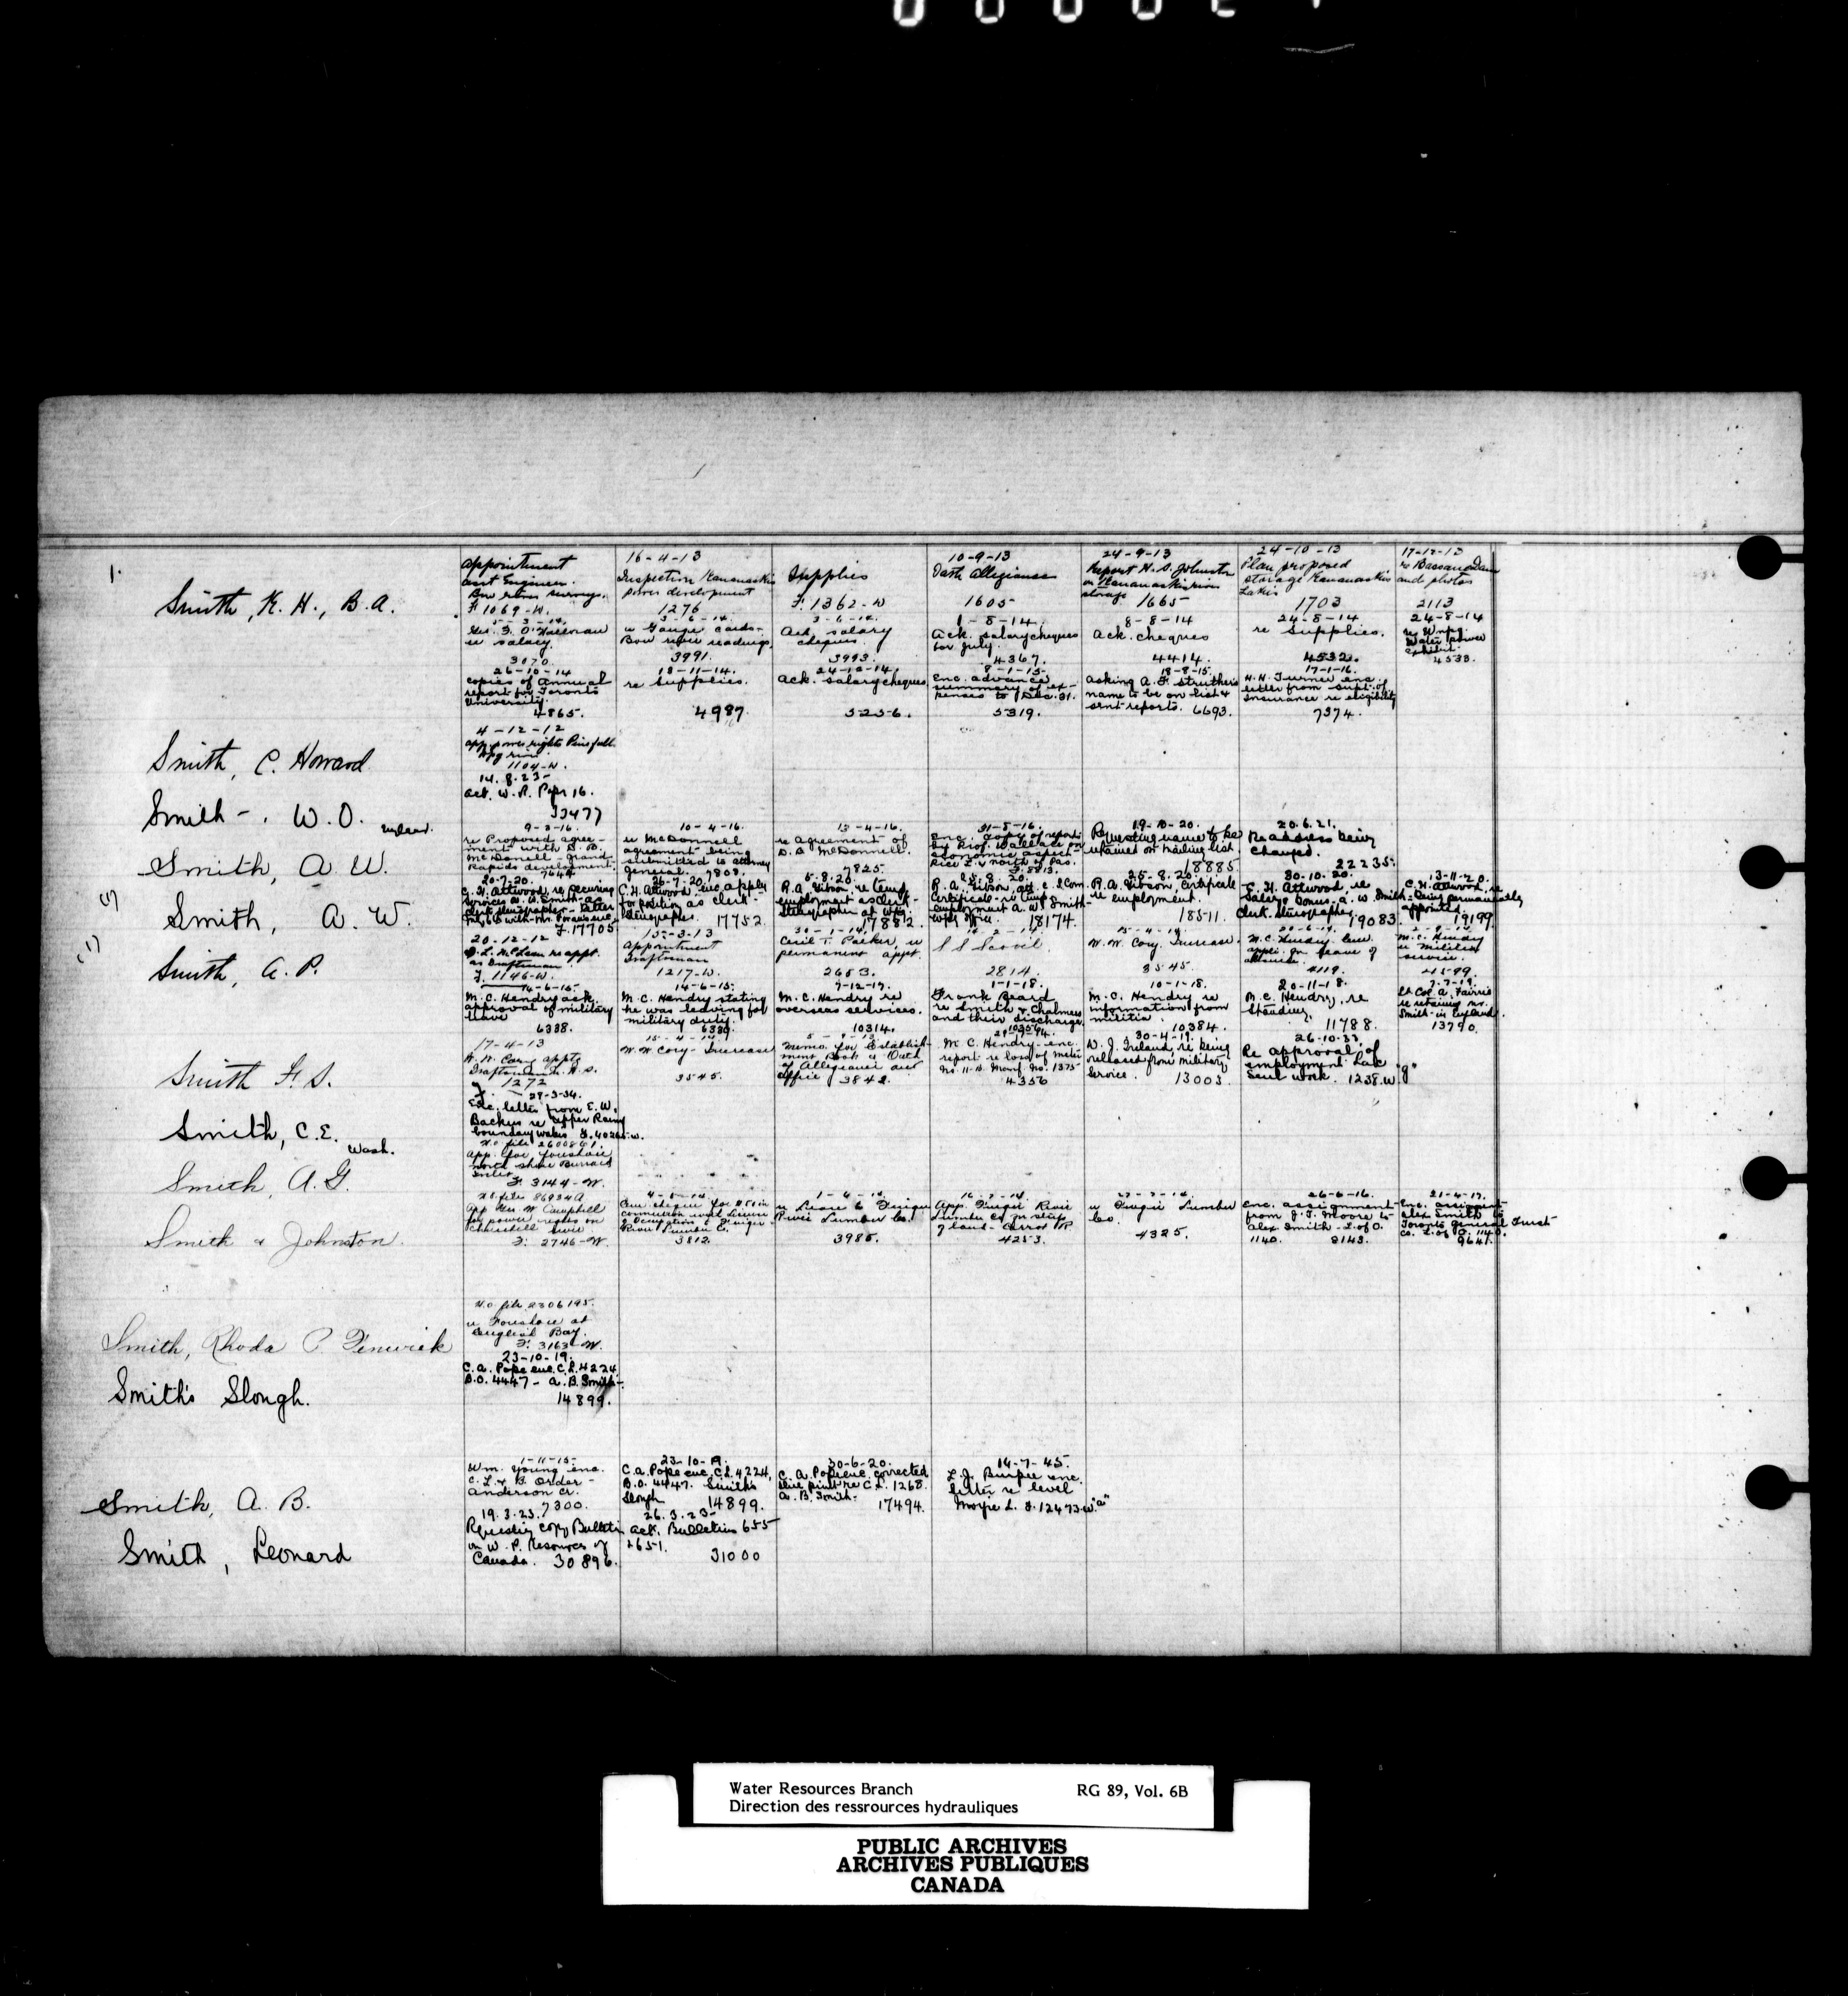 1.
Smith, K. H., B.A.
appointment
asst Engineer.
Bow river surveys.
F. 1069-W.
16-4-13
Inspection Kananaskis
power development
1276
Supplies
F. 1362-W
10-9-13
Oath Allegiance
1605
24-9-13
Report H. S. Johnston
on Kananaskis river
storage 1665
24-10-13
Plan proposed
storage Kananaskis
Lakes
1703
17-12-13
re Bassano Dam
and photos
2113
re salary.
3070
re Gauge cards-
Bow river readings.
3991.
Ack. salary
cheques.
3993.
1-8-14.
Ack. salary cheques
for July.
4367.
8-8-14
Ack. cheques
4414.
24-8-14
re Supplies.
4532.
24-8-14
re Wnpg.
Water power
exhibit.
4533.
26-10-14
copies of annual
report for Toronto
University.
4865.
18-11-14.
re Supplies.
4987
24-12-14.
ack. salary cheques
5256.
8-1-15-
Enc. advance
summary of ex-
penses to Dec. 31.
5319.
18-9-15.
asking A. F. Struthers
name to be on list &
send reports. 6693.
17-1-16.
H. H. Turner enc.
letter from supt. of
Insurance re eligibility
7374.
Smith, C. Howard
4-12-12
app. power rights
1104-W.
Smith-. W. O. England.
14.8.23-
ack. W. R. Papr 16.
33477
Smith, A W.
9-3-16.
re Proposed agree-
ment with D. B.
McDonnell - Grand
Rapids development.
7644
10-4-16.
re McDonnell
agreement being
submitted to attorney
general. 7803.
13-4-16.
re agreement of
D. B. McDonnell.
7825
31-5-16.
Enc. copy of report
by Prof. Wallace on
economic aspect
north of Pas.
F. 8813.
19-10-20.
Requesting name to be
retained on mailing list.
18885
20.6.21.
Re address being
changed.
22235.
(1)
Smith, A. W.
20-7-20.
C. H. Attwood, re securing
services A. W. Smith as
clerk stenographer - letter
F. 17705
26-7-20
C. H. Attwood enc. apply
for position as clerk-
Stenographer. 17752.
5-8-20.
R. A. Gibson, re temp.
employment as clerk-
Stenographer at Wpg.
17882
25.8.20.
R. A. Gibson,
Certificate re temp
employment A. W. Smith-
Wpg office. 18174.
25-8-20.
R. A. Gibson, certificate
re employment.
18511.
30-10-20.
C. H. Attwood, re
Salary & bonus- A. W. Smith-
clerk Stenographer, 19083
13-11-20.
C. H. Attwood, re
being permanently
appointed.
19199
(1)
Smith, A. P.
20-12-12
D. L. McLean re appt.
as Draftsman.
F. 1146-W.
15-3-13
Appointment
Draftsman
1217-W.
30-1-14
Cecil T. Parker, re
permanent appt.
2653.
2814.
W. W. Cory. Increase.
3545.
M. C. Hendry
leave of
absence.
4119.
M. C. Hendry
re military
service.
4599.
14-6-15-
M. C. Hendry ack.
approval of military
leave
6388.
14-6-15-
M. C. Hendry stating
he was leaving for
military duty.
M. C. Hendry re
overseas services.
10314.
1-1-18.
Frank Beard
re Smith & Chalmers
and their discharge.
10356
10-1-18.
M. C. Hendry re
information from
militia.
10384.
20-11-18.
M. C. Hendry, re
standing.
11788.
Lt Col. A. Fairrie
re retaining Mr.
Smith in England.
13790.
Smith F. S.
17-4-13
W. W. Cory appt.
1272
W. W. Cory- Increase
3545.
Memo. for Establish-
ment Book & Oath
of Allegiance and
Office 3842.
M. C. Hendry- enc.
report re loss of meter
4356
30-4-19.
W. J. Ireland, re being
released from military
service. 13003
26.10.33
Re approval of
employment Lac
Seul work. 1238.W."g"
Smith, C.E. Wash.
29-3-34.
Enc. letter from E. W.
Backus re Upper Rainy
boundary waters
Smith, A. G.
H.O. file 2600861.
App. for foreshore
north shore Burrard
Inlet
F. 3144-W.
Smith & Johnston.
H.O. file 86934A
App. Geo. W. Campbell
for power rights on
Churchill river
F. 2746-W.
3812.
re Lease to Finger
River Lumber Co.
3985.
App. Finger River
Lumber Co.
of land- Carrot R.
4253.
re Finger Lumber
Co.
4325.
26-6-16.
Enc. assignment
from J. T. Moore to
Alex. Smith - L. of O.
1140. 8143.
21-4-17.
Enc. assignment
Alex Smith to
Toronto General Trust
Co. L. of O. 1140.
9641.
Smith, Rhoda P Fenwick
H.O. file 2306195.
re Foreshore at
English Bay.
F. 3163-W.
Smith's Slough.
23-10-19.
C. A. Pope enc. C.L. 4224
B.O. 4447- A. B. Smith-
14899.
Smith, A. B.
1-11-15-
Wm. Young enc.
C. L. & B. Order-
Anderson Cr.
7300.
23-10-19.
C. A. Pope enc. C.L. 4224,
B.O. 4447. Smith's
Slough 14899.
30-6-20.
C. A. Pope enc. corrected
blue print re C.L. 1268.
A. B. Smith- 17494.
14-7-45.
L. J. Burpee enc.
letter re level
Moyie L. F. 12473-W."a"
Smith, Leonard
19.3.23.
Requesting copy Bulletin
on W. P. Resources of
Canada. 30896.
26.3.23-
ack. Bulletins 655
& 651.
31000
Water Resources Branch RG 89, Vol. 6B
Direction des ressrources hydrauliques
PUBLIC ARCHIVES
ARCHIVES PUBLIQUES
CANADA